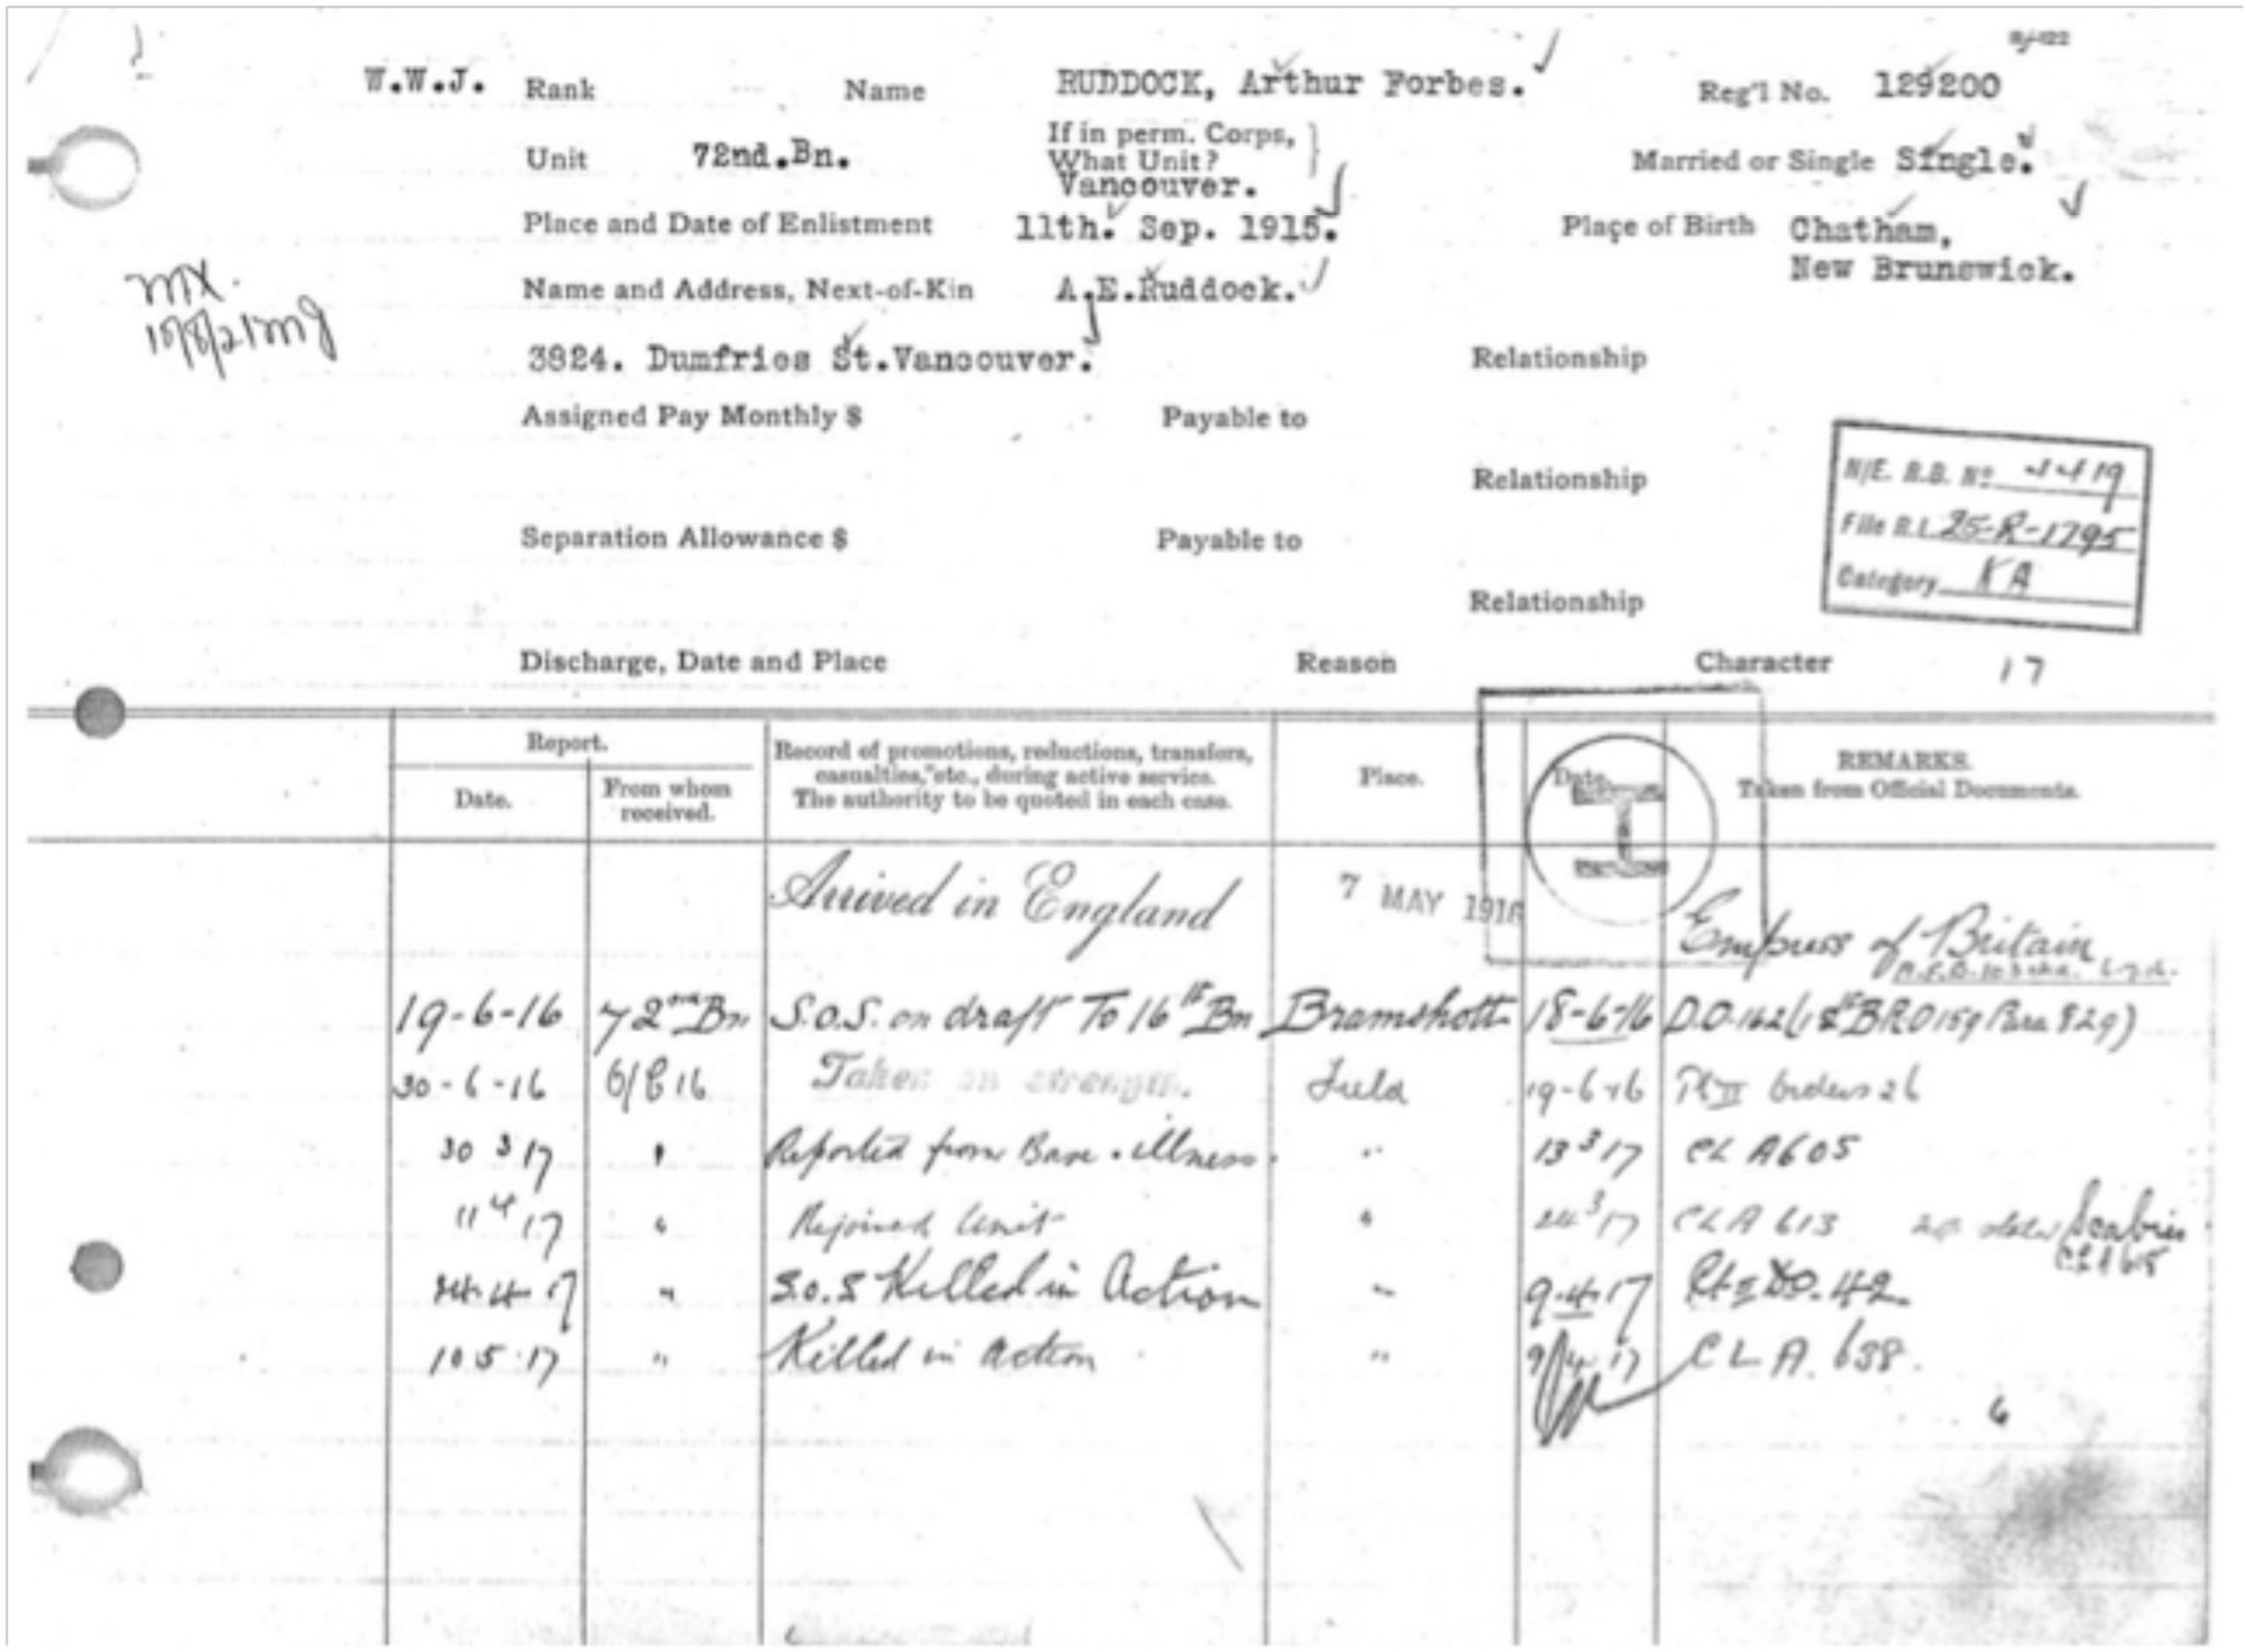 W.W.J. Rank Name RUDDOCK, Arthur Forbes. Reg'l No. 129200
Unit 72nd.Bn. If in perm. Corps, What Unit? Married or Single Single.
Vancouver.
Place and Date of Enlistment 11th. Sep. 1915. Place of Birth Chatham,
New Brunswick.
Name and Address, Next-of-Kin A.E.Ruddock.
3924. Dumfries St.Vancouver. Relationship
Assigned Pay Monthly $ Payable to
Relationship
N/E. R.B. No
File R.L. 25-R-1795
Category KA
Separation Allowance $ Payable to
Relationship
Discharge, Date and Place Reason Character 17
Report. Date. From whom received. Record of promotions, reductions, transfers, casualties, etc., during active service. The authority to be quoted in each case. Place. Date. REMARKS. Taken from Official Documents.
Arrived in England 7 MAY 1916 Empress of Britain
19-6-16 72nd Bn S.O.S. on draft To 16th Bn Bramshott 18-6-16 D.O. 142 BRO 159 Para 829)
30-6-16 Taken on strength. Field 19-6-16 Pt II Orders 26
30 3 17 " Reported from Base . illness. " 13 3 17 CL A605
11 4 17 " Rejoined Unit " 24 3 17 CL A 613 Scabies
" S.O.S Killed in Action " 9-4-17 Pt II DO. 42
10 5 17 " Killed in Action " 9 4 17 C L A. 638.
6